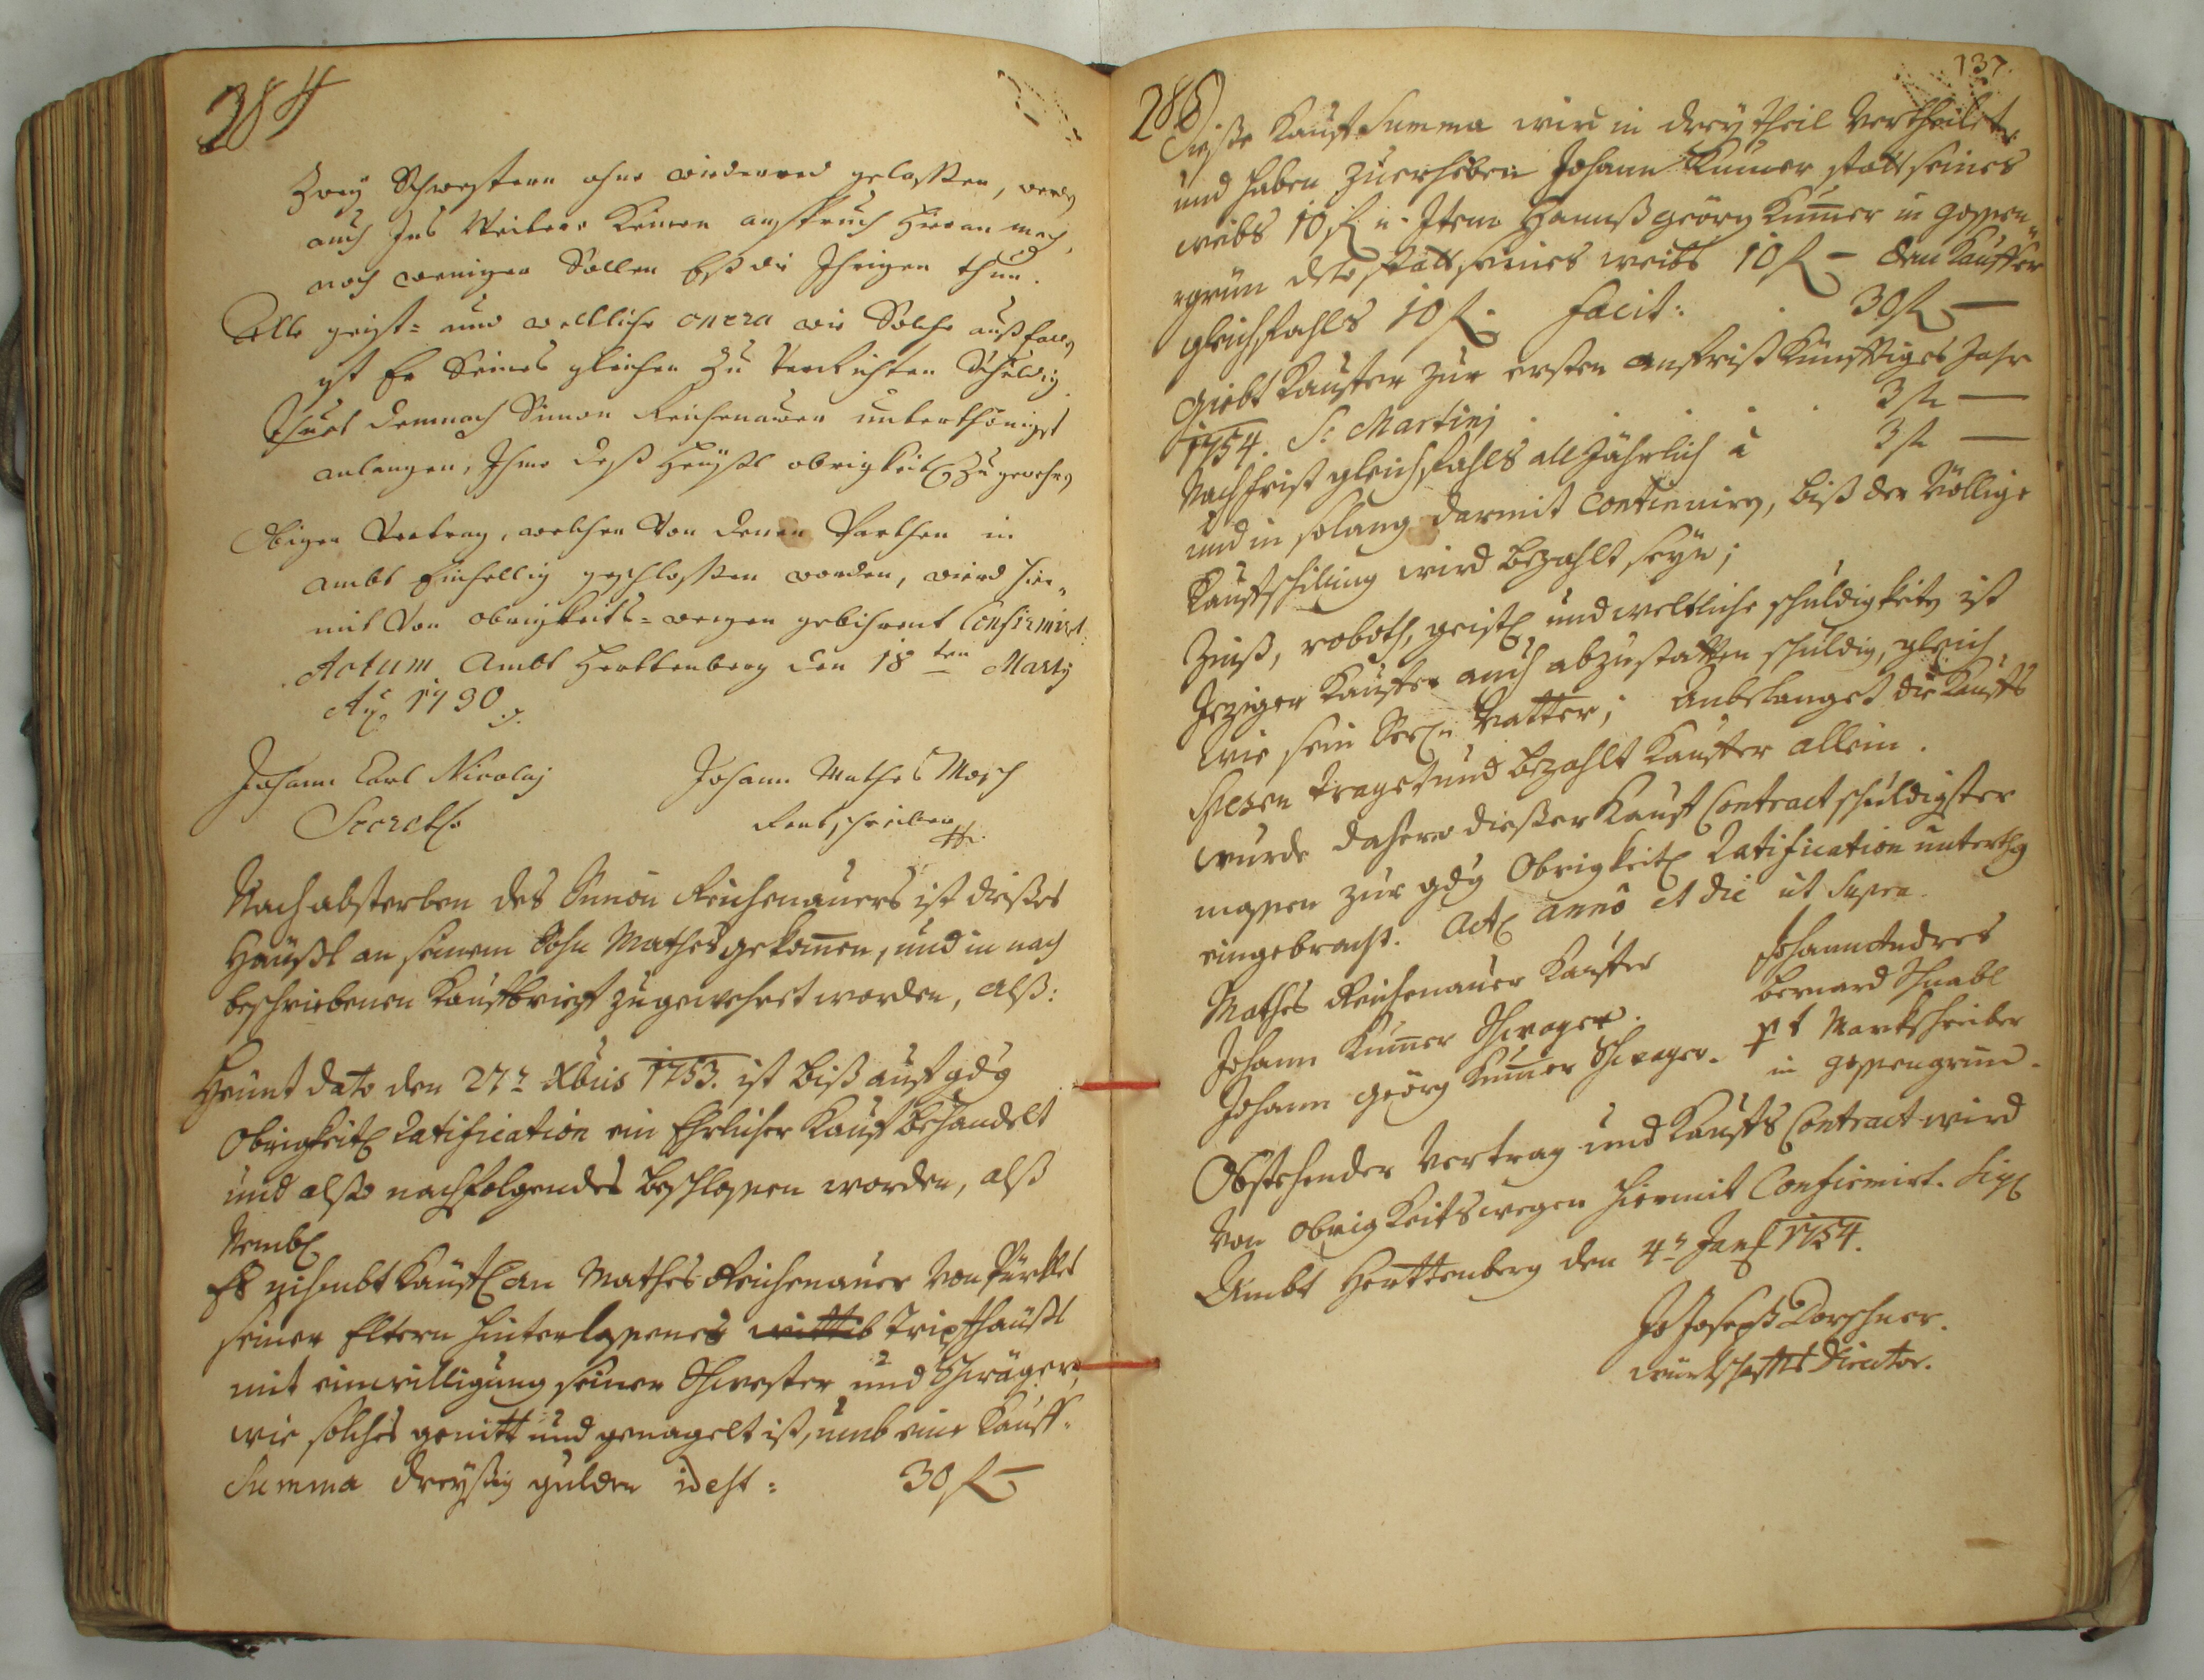 284
Zweÿ Schwestern ohne wiederred gelaßen, werdn
auch Ins Weitere Keinen anspruch hieran mach,
noch weniger Sollen Eß die Ihrigen thun.
Alle geist- und weltliche onera wie Solche außfalln
ist Er Seines gleichen zu Verrichten Schuldig.
Thuet demnach Simon Reichenauer unterthönigst
anlangen, Ihme deß Heüßl obrigkeitl. zu gewehrn
Obigen Vertrag, welchen Von denen Parthen in
Ambt Einhellig geschloßen worden, wierd hier„
mit Von obrigkeits-wegen gebihrent Confirmirt.
Actum Ambt Herttenberg den 18ten Martÿ
Aõ 1730
Johann Carl Nicolaj
Johann Mathes Mosch
Secret.
Rentschreiber
Nach absterben des Simon Reichenauers ist dießes
Häußl an seinem Sohn Mathes gekom̅en, und in nach
beschriebenen Kaufbrieff zugewehret worden, alß:
Heunt dato den 27ᵗ Xbris 1753. ist biß auf gdg
Obrigkeitl Ratification ein Ehrlicher Kauf behandelt
und also nachfolgendes beschlossen worden, alß
Nembl
Es nihmbt Käufl an Mathes Reichenauer Von Pürkles
seiner Eltern hinterlassenes Tripfhäußl
mit einwilligung seiner Schwester und Schwäger,
wie solches genitt und genagelt ist, umb eine Kauff-
Summa dreyßig gulden idest: 30 f —
285
137.
Dieße Kauf Summa wird in dreÿ theil Vertheilet
und haben zuerheben Johann Kum̅er statt seines
weibs 10 f. Item Hannß Georg Kum̅er in gossen„
„grün dto statt seines weibs 10 f — dem Kauffer
gleichfahls 10 f. facit: 30 f —
Giebt Kauffer zur ersten anfrist Künfftiges Jahr
1754. S. Martinj 3 f —
Nachfrist gleichfahls all Jährlich à 3 f —
und in solang darmit Continuirn, biß der Völlige
Kaufschilling wird bezahlt seÿn;
Zinß, roboth, geistl und weltliche schuldigkeitn ist
Jeziger Kauffer auch abzustatten schuldig, gleich
wie sein Seel. Vatter; Anbelanget die Kauffs
spesen traget und bezahlt Kauffer allein.
wurde dahero dießer Kauf Contract schuldigster
massen zur gdg Obrigkeitl Ratification unterthg
eingebracht. Act anno et die ut supra.
Mathes Reichenauer Kauffer
Johann Andres
Bernard Schnabl
Johann Kum̅er Schwager.
pt Markschreiber
Johann Georg Kum̅er Schwager.
in gossengrün.
Obstehender Vertrag und Kauffs Contract wird
Von Obrigkeitswegen hiermit Confirmirt. Sigl
Ambt Herttenberg den 4ᵗ Jan 1754.
Jo Joseph Dorschner.
würtschaffts Director.